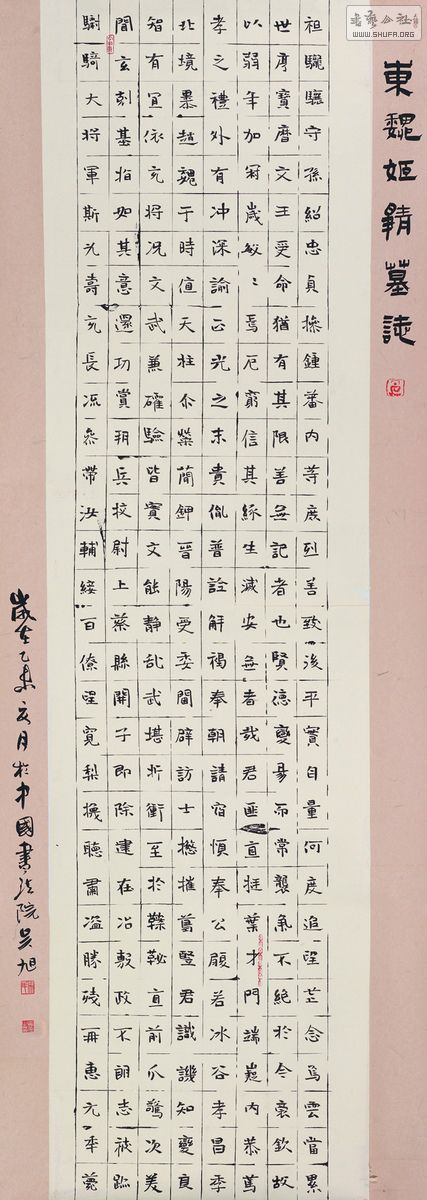 書藝公社
WWW.SHUFA.ORG
東魏姬墓誌
祖驪驤守孫紹忠貞摠鍾蕃內等庶列善致後平實自量何度追望芒念焉雲當累
世厚寶曆文王受命猶有其限善無記者也賢德變易而常襲氣不絕於今哀欽故
以弱年加冠歲敏〻焉厄窮信其緣生滅安無者哉君匪直挺葉才門端嶷內恭篤
孝之禮外有沖深諭正光之末貴胤普詮解褐奉朝請宿慎奉公履若冰谷孝昌季
北境暴起魏于時值天柱尒榮蕳鉀晉陽受委閫辟訪士摧舊豎君識譏知變良
智有宜依充將況文武兼確驗皆實文能靜乱武堪折衝至於直前爪驚次美
間玄刻基指如其意還功賞朔兵校尉上蔡縣開子即除建在治敷政不朗志
驃騎大將軍斯九壽充長流參帶汝輔綏百僚望寬梨撫聽肅溢勝殘冊惠元年薨
歲在乙未亥月於中國書法院吳旭